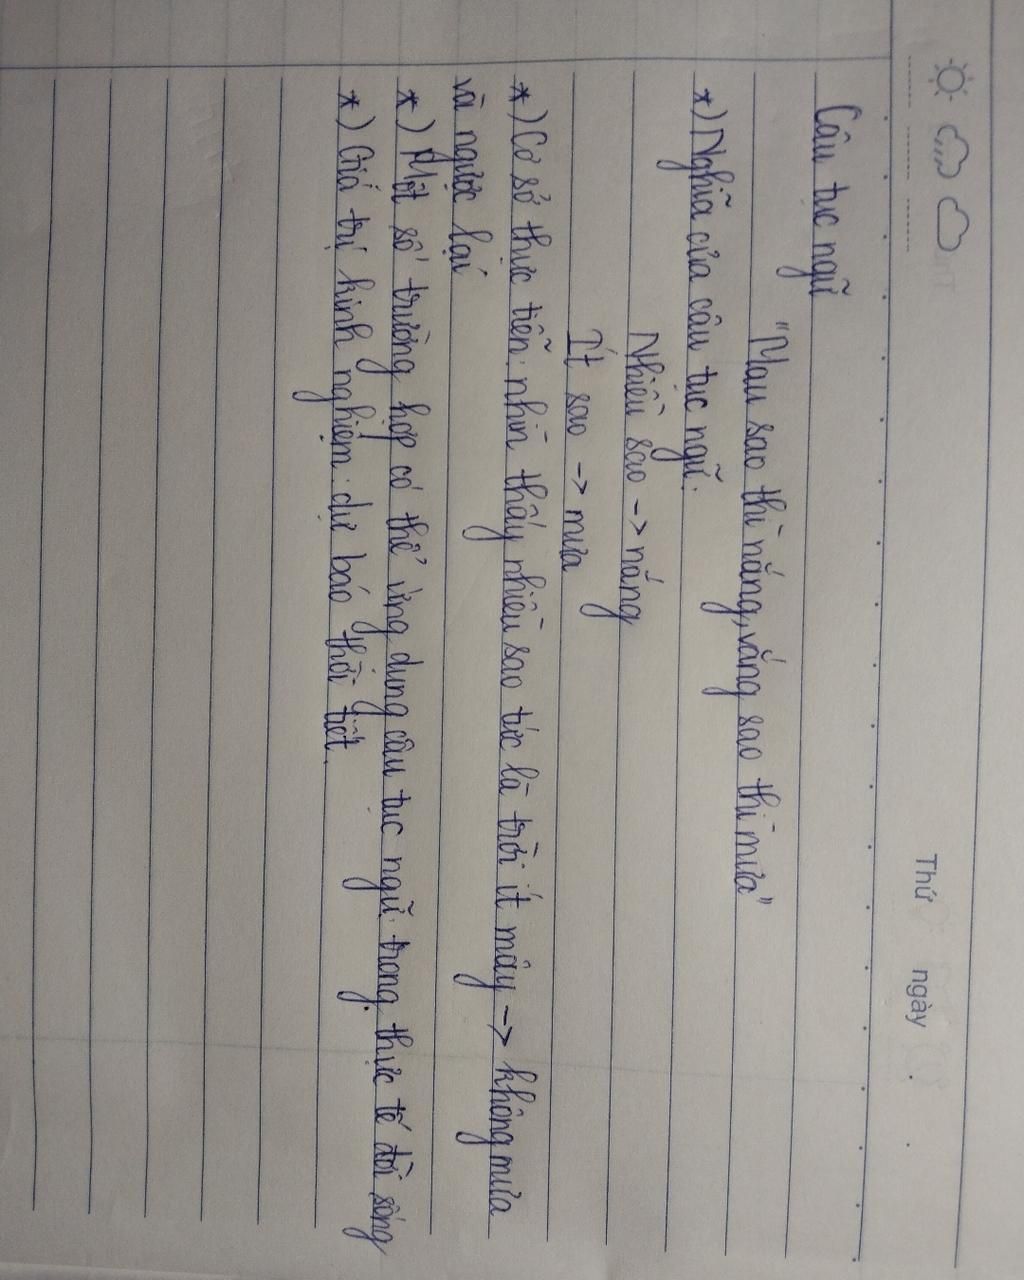 Thứ ngày
Câu tục ngữ
"Mau sao thì nắng, vắng sao thì mưa"
*) Nghĩa của câu tục ngữ.
Nhiều sao -> nắng
Ít sao -> mưa
*) Cơ sở thực tiễn: nhìn thấy nhiều sao tức là trời ít mây -> không mưa
và ngược lại
*) Một số trường hợp có thể ứng dụng câu tục ngữ: trong thực tế đời sống
*) Giá trị kinh nghiệm: dự báo thời tiết.